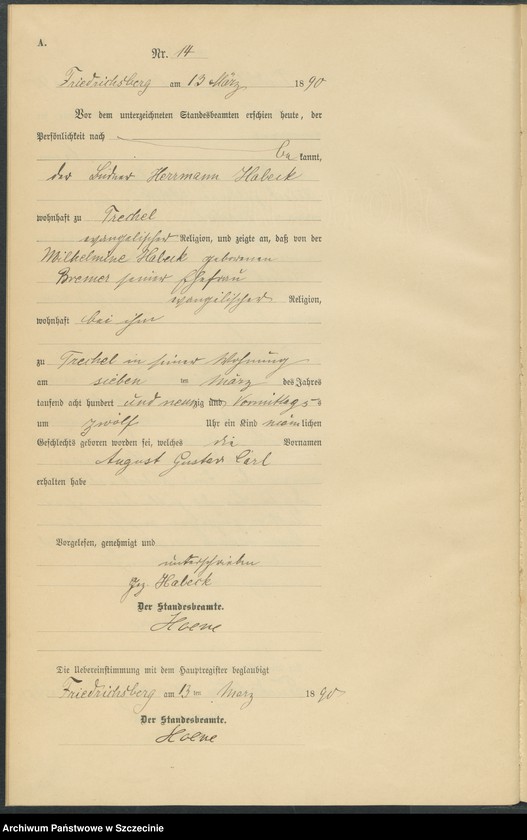 A.
Nr. 14
Friedrichsberg am 13 März 1890
Vor dem unterzeichneten Standesbeamten erschien heute, der
Persönlichkeit nach
be kannt,
der Herrmann Habeck
wohnhaft zu Trechel
evangelischer Religion, und zeigte an, daß von der
Wilhelmine Habeck geborenen
Bremer seiner Ehefrau
evangelischer Religion,
wohnhaft bei ihm
zu Trechel in seiner Wohnung
am sieben ten März des Jahres
tausend acht hundert und neunzig und Vormittags
um zwölf Uhr ein Kind männlichen
Geschlechts geboren worden sei, welches die Vornamen
August Gustav Carl
erhalten habe
Vorgelesen, genehmigt und
unterschrieben
gez Habeck
Der Standesbeamte.
Hoene
Die Uebereinstimmung mit dem Hauptregister beglaubigt
Friedrichsberg am 13 ten März 1890
Der Standesbeamte.
Hoene
Archiwum Państwowe w Szczecinie